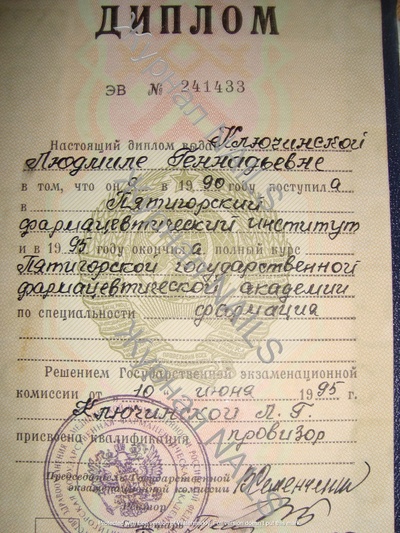 ДИПЛОМ
ЭВ № 241433
Настоящий диплом выдан Ключинской
Людмиле Геннадьевне
в том, что она в 1990 году поступила
в Пятигорский
фармацевтический институт
и в 1995 году окончила полный курс
Пятигорской государственной
фармацевтической академии
по специальности фармация
Решением Государственной экзаменационной
комиссии от 10 июня 1995 г.
Ключинской Л. Г.
присвоена квалификация провизор
Председатель Государственной
экзаменационной комиссии
Ректор
Журнал NAILS
Журнал NAILS
Журнал NAILS